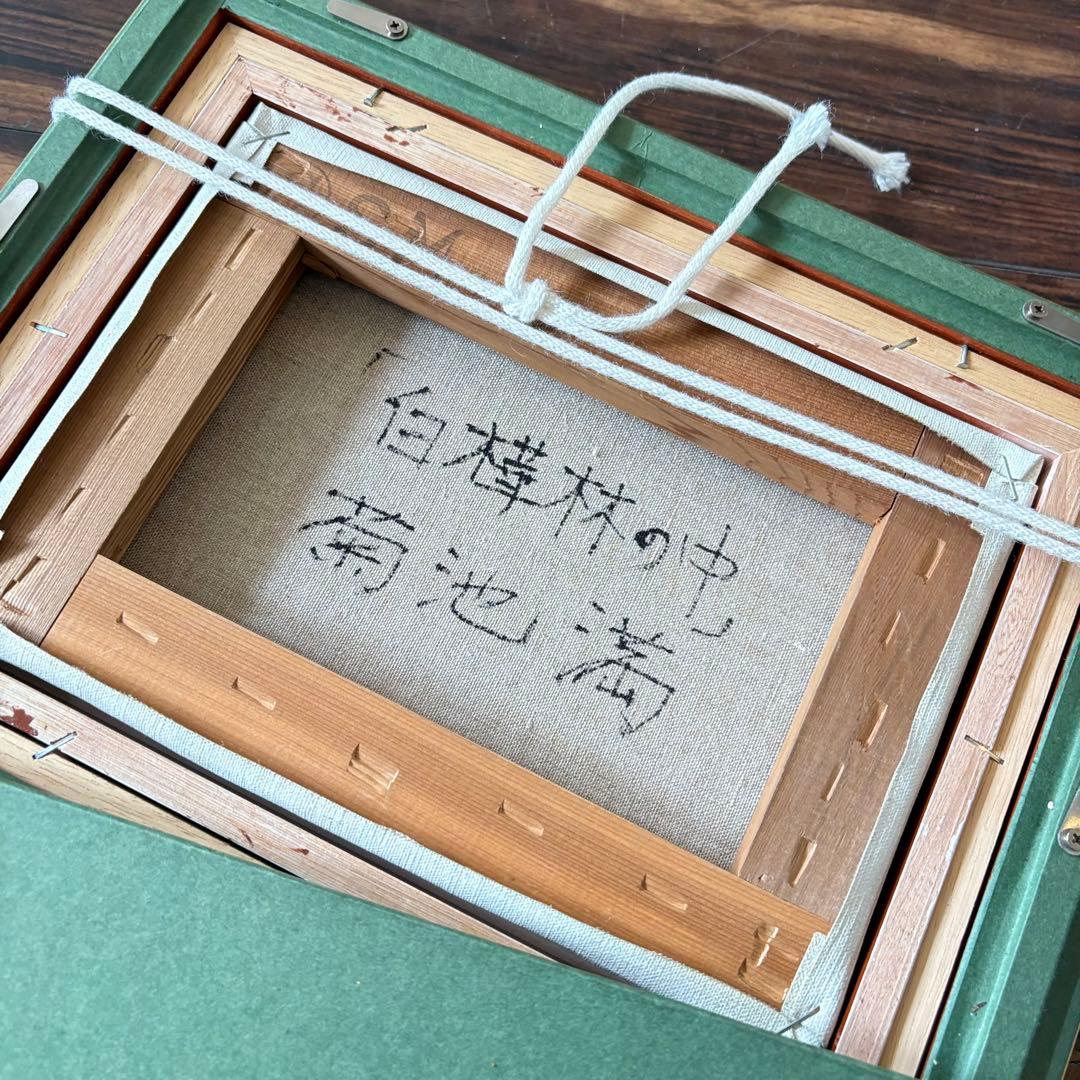 「白樺林の中」
菊池満